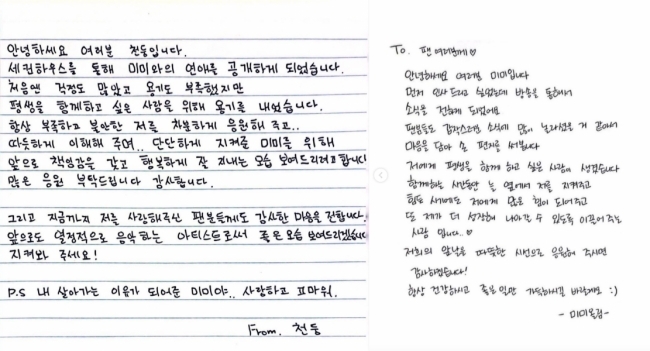 안녕하세요 여러분 천둥입니다.
세컨하우스를 통해 미미와의 연애를 공개하게 되었습니다.
처음엔 걱정도 많았고 용기도 부족했지만
평생을 함께하고 싶은 사람을 위해 용기를 내었습니다.
항상 부족하고 불안한 저를 차분하게 응원해 주고..
따듯하게 이해해 주며.. 단단하게 지켜준 미미를 위해
앞으로 책임감을 갖고 행복하게 잘 지내는 모습 보여드리려고 합니다
많은 응원 부탁드립니다 감사합니다.
그리고 지금까지 저를 사랑해주신 팬분들께도 감사한 마음을 전합니다.
앞으로도 열정적으로 음악하는 아티스트로서 좋은모습 보여드리겠습니다
지켜봐 주세요!
P.S 내 살아가는 이유가 되어준 미미야.. 사랑하고 고마워.
From. 천둥
To. 팬 여러분께♡
안녕하세요 여러분 미미입니다
먼저 인사드리고 싶었는데 방송을 통해서
소식을 전하게 되었어요
팬분들도 갑작스러운 소식에 많이 놀라셨을 거 같아서
마음을 담아 손 편지를 써봅니다
저에게 평생을 함께 하고 싶은 사람이 생겼습니다
함께하는 시간동안 늘 옆에서 저를 지켜주고
힘든 시기에도 저에게 많은 힘이 되어주고
또 제가 더 성장해 나아갈 수 있도록 이끌어주는
사람 입니다..♡
저희의 앞날을 따뜻한 시선으로 응원해 주시면
감사하겠습니다!
항상 건강하시고 좋은 일만 가득하시길 바랄게요 :)
- 미미올림-